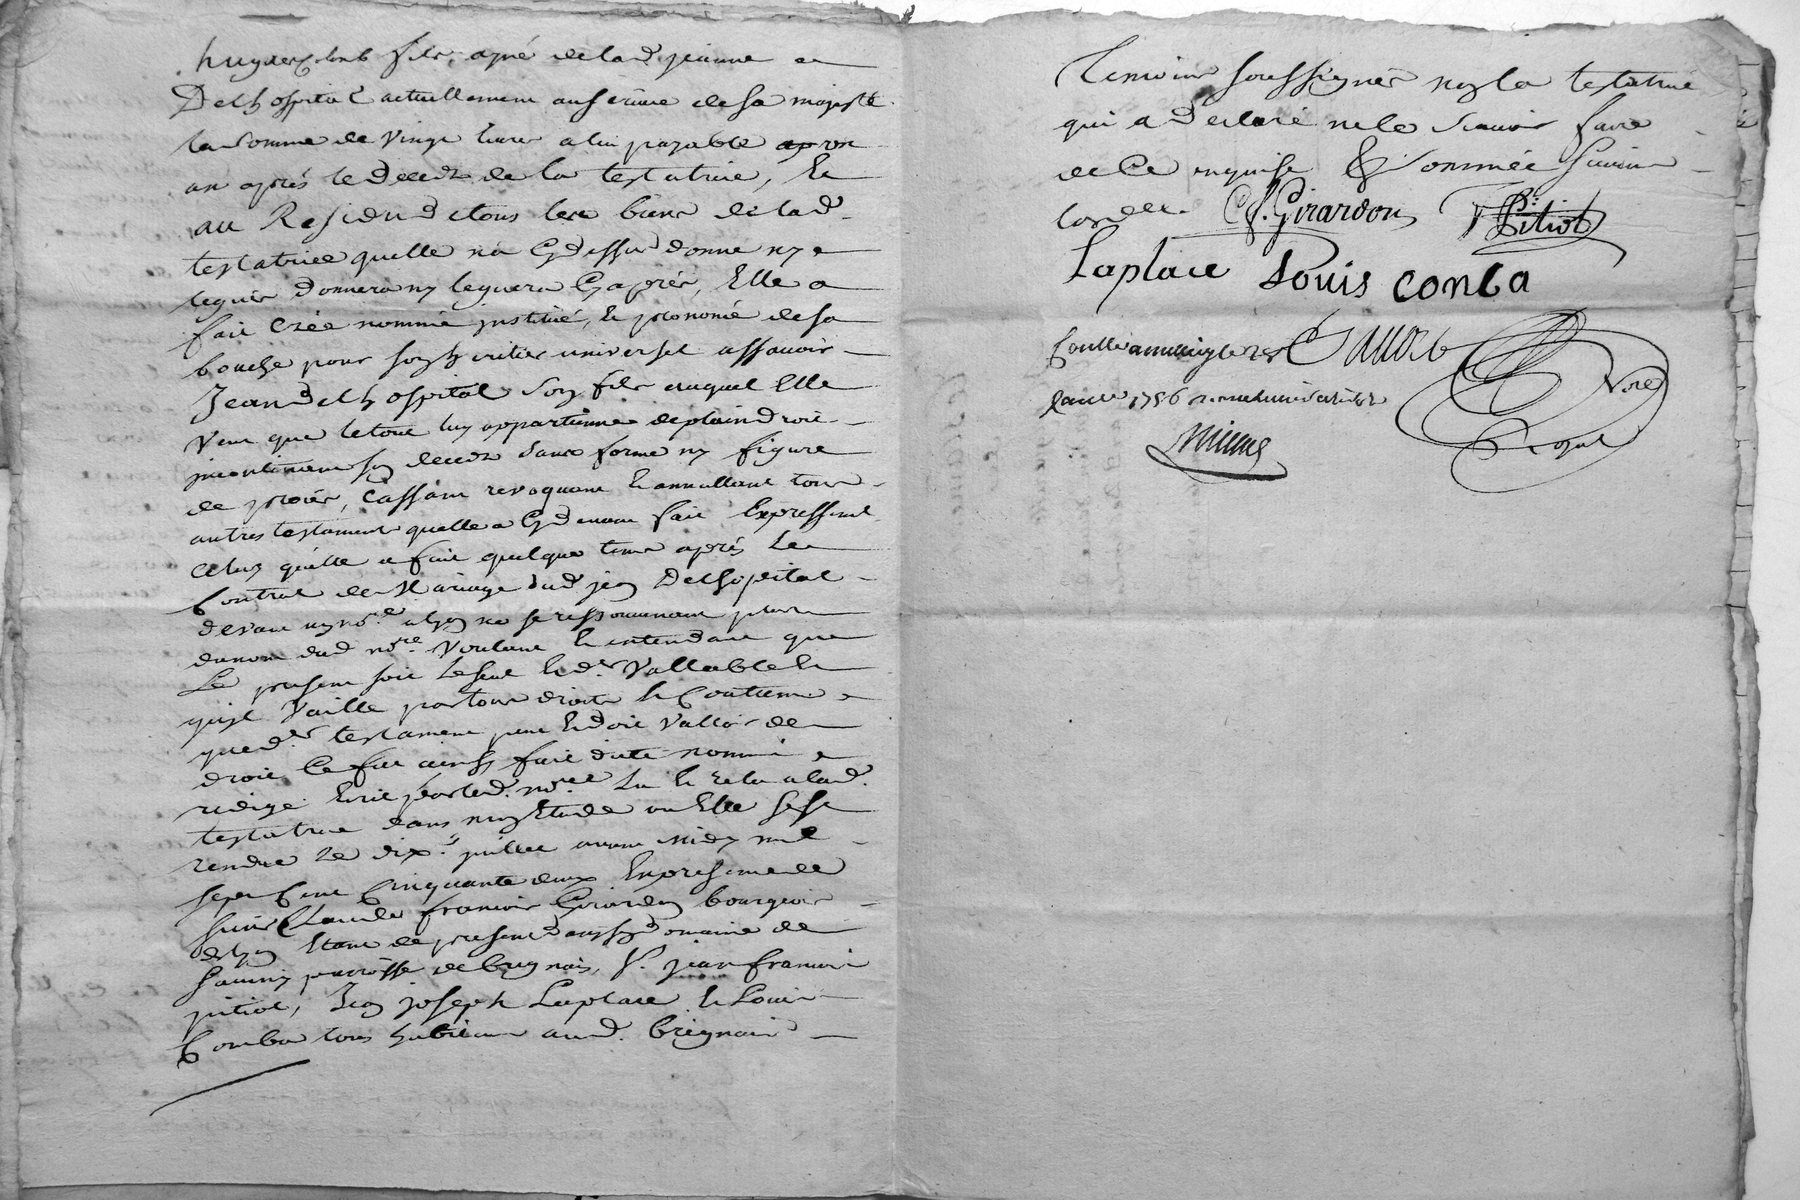 fils ayné de lad. jeanne
Delhospital actuellement au service de sa majesté
la somme de vingt livres a luy payable
an après le deceds de la testatrice, Et
au Residu de tous les biens de lad.
testatrice quelle na Cydessus donné ny
legué donnera ny leguera Cyaprès, Elle a
fait créé nommé institué, et prononcé de sa
bouche pour son heritier universel assavoir
Jean Delhospital son fils auquel Elle
veut que le tout luy appartienne de plain droit
incontinent son deceds sans forme ny figure
de procès, Cassant revoquant Et annullant tous
autres testament quelle a Cydevant fait Expressement
celuy quelle a fait quelque tems après Le
Contrat de Mariage dud. jean Delhopital
devant un no.re a lyon ne se ressouvenant plus
du nom dud. no.re voulant Et entendant que
Le present soit Le seul Et d.er vallable Et
quil vaille par tous droits Et Coutumes
que d.er testament peut Et doit valloir de
droit Ce fut ainsy fait dicté nommé
redigé Ecrit par led. no.re Lu Et relu a lad.
testatrice dans mon Etude ou Elle sest
rendue Le dix juillet avant midy mil
sept Cent Cinquante deux En presence de
sieur Claude francois Girardon bourgeois
de lyon Etant de present au domaine de
parroisse de brignais, S. jean francois
pitiot, Jean joseph Laplace Et Louis
Comba tous habitans aud. brignais
Temoins soussignés non la testatrice
qui a declaré ne le scavoir faire
de Ce enquise & sommée suivant
lord.ce C.f. Girardon Pitiot
Laplace Louis Conba
1756
no.re
Royal